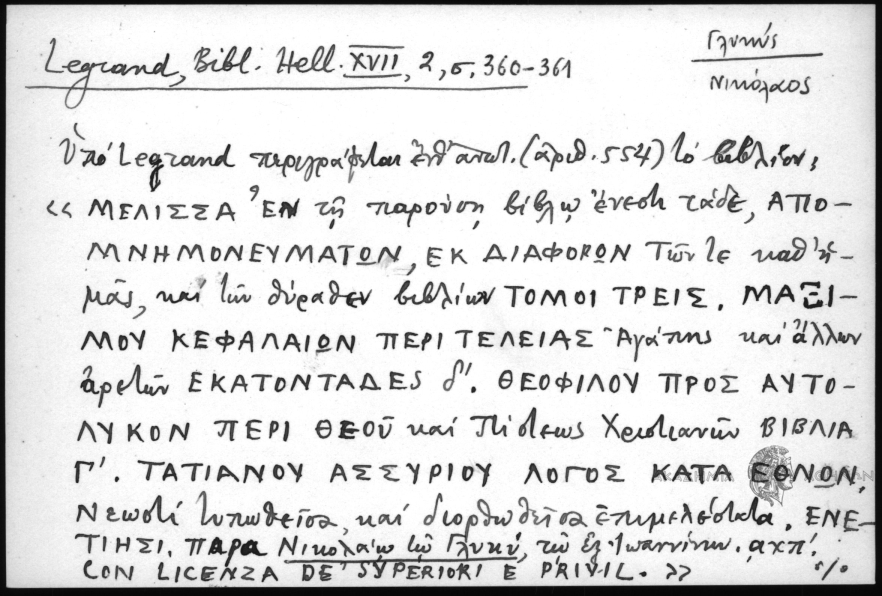 Legrand, Bibl. Hell. XVII, 2, σ. 360-361
Γλυκύς
Νικόλαος
Ὑπό Legrand περιγράφεται ἐνθ' ἀνωτ. (ἀριθ. 554) τό βιβλίον:
«ΜΕΛΙΣΣΑ Ἐν τῇ παρούσῃ βίβλῳ ἔνεστι τάδε, ΑΠΟ-
ΜΝΗΜΟΝΕΥΜΑΤΩΝ, ΕΚ ΔΙΑΦΟΡΩΝ Τῶν τε καθ' ἡ-
μᾶς, καί τῶν θύραθεν βιβλίων ΤΟΜΟΙ ΤΡΕΙΣ. ΜΑΞΙ-
ΜΟΥ ΚΕΦΑΛΑΙΩΝ ΠΕΡΙ ΤΕΛΕΙΑΣ Ἀγάπης καί ἄλλων
ἀρετῶν ΕΚΑΤΟΝΤΑΔΕΣ δ'. ΘΕΟΦΙΛΟΥ ΠΡΟΣ ΑΥΤΟ-
ΛΥΚΟΝ ΠΕΡΙ ΘΕΟῦ καί Πίστεως Χριστιανῶν ΒΙΒΛΙΑ
Γ'. ΤΑΤΙΑΝΟΥ ΑΣΣΥΡΙΟΥ ΛΟΓΟΣ ΚΑΤΑ ΕΘΝΩΝ,
Νεωστί τυπωθεῖσα, καί διορθωθεῖσα ἐπιμελέστατα. ΕΝΕ-
ΤΙΗΣΙ. Παρα Νικολάῳ τῷ Γλυκύ, τῷ ἐξ Ἰωαννίνων. αχπ'.
CON LICENZA DE' SUPERIORI E PRIVIL.»
·/·